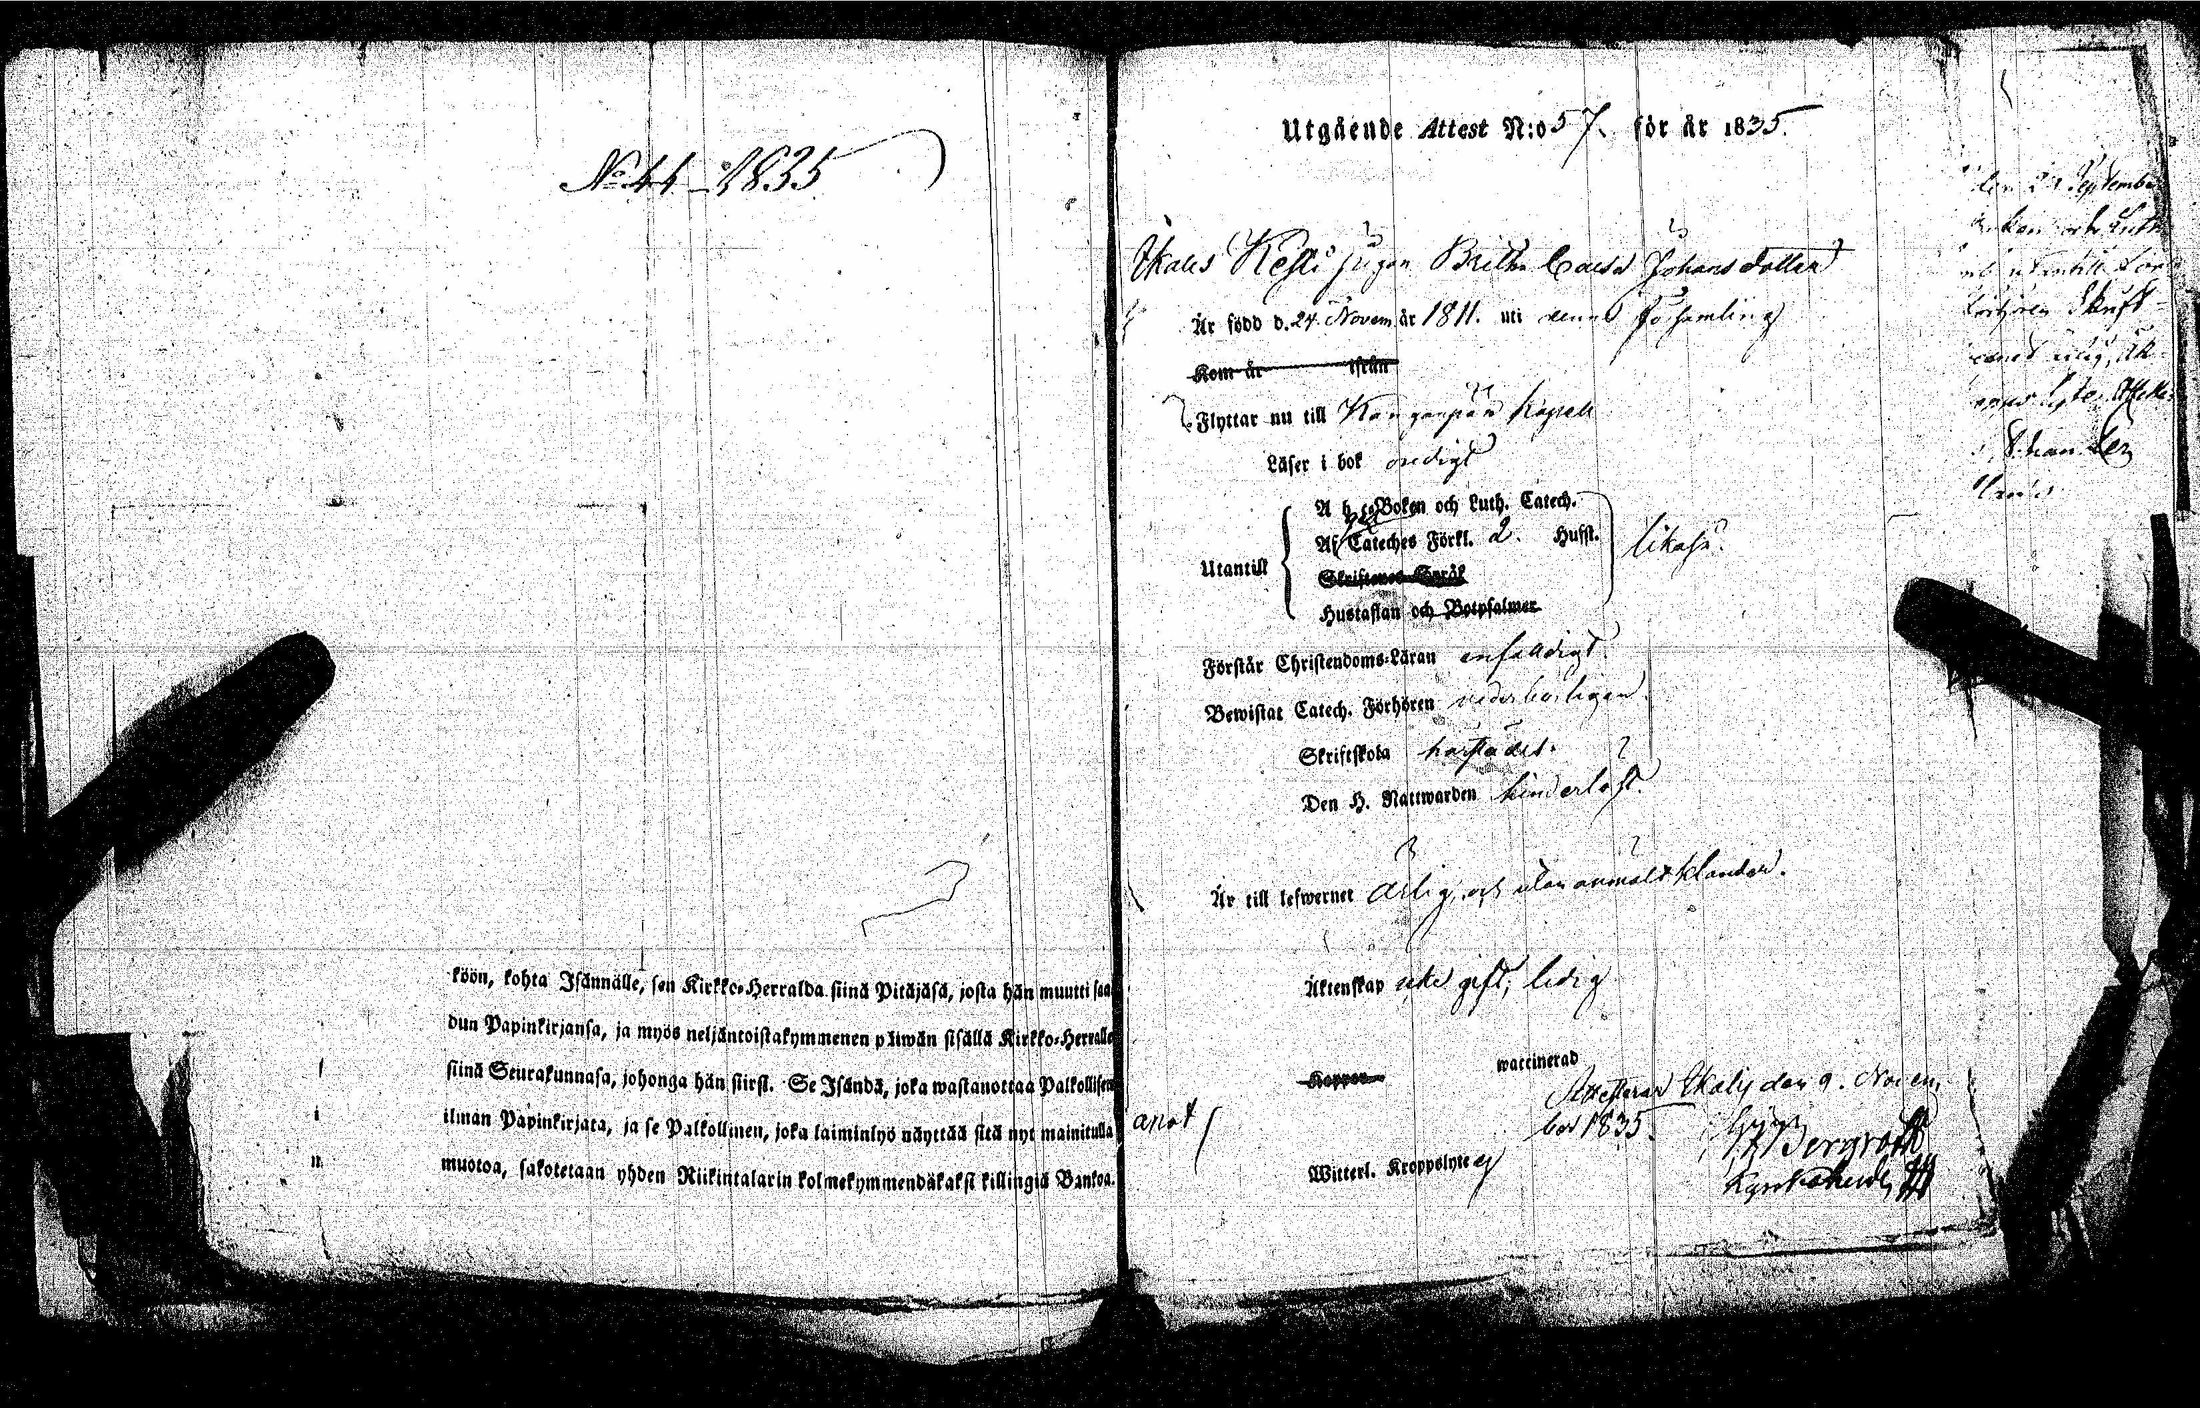 No 44 - 1835
köön, kohta Isännälle, sen Kirkko-Herralda siinä Pitäjäsä, josta hän muutti saa
dun Papinkirjansa, ja myös neljäntoistakymmenen päiwän sisällä Kirkko-Herralle
siinä Seurakunnasa, johonga hän siirsi. Se Isändä, joka wastanottaa Palkollisen
ilman Papinkirjata, ja se Palkollinen, joka laiminlyö näyttää sitä nyt mainitulla
muotoa, sakotetaan yhden Riikintalarin kolmekymmendäkaksi killingiä Bankoa.
Utgående Attest N:o 57. för år 1835.
Ikalis Kesti pigan Britha Caisa Johansdotter
Är född d. 24 Novem år 1811. uti denna Församling
Kom år ifrån
Flyttar nu till Kangonpää Kapell
Läser i bok oredigt
A b c Boken och Luth. Catech.
Af Cateches Förkl. 2. Hufst.
likaså.
Utantill
Skriftenes Språk
Hustaflan och Botpsalmer
Förstår Christendoms-Läran enfaldigt.
Bewistat Catech. Förhören vederbörligen.
Skriftskola härstädes.
Den H. Nattwarden hinderlöst.
Är till lefwernet ärlig, och utan anmält klander.
Äktenskap icke gift, ledig
Koppor waccinerad
Attesterar Ikalis den 9. Novem
ber 1835.
Bergroth
Witterl. Kroppslyte ej
den 21 September
Skrift